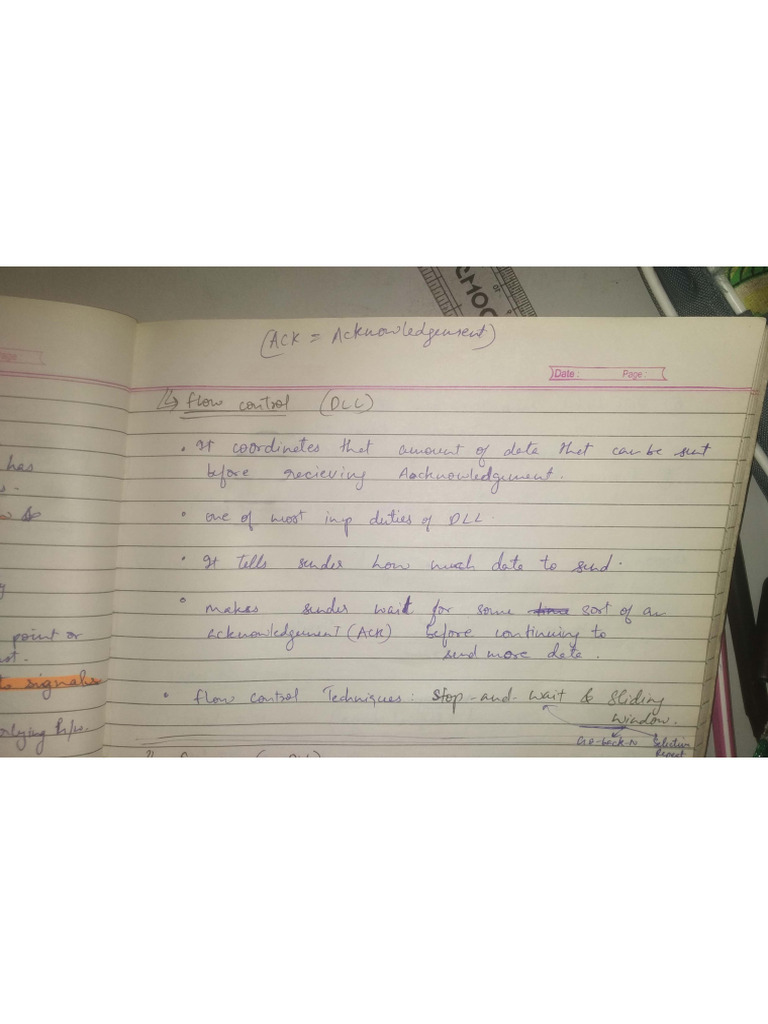 EMOG
(ACK = Acknowledgement)
Page:
Date : Page :
↳ flow control (DLL)
• It coordinates that amount of data that can be sent
before recieving Aacknowledgement.
• one of most imp duties of DLL.
• It tells sender how much data to send.
• makes sender wait for some sort of an
Acknowledgement (ACK) before continuing to
send more data.
• flow control Techniques: Stop-and-wait & Sliding
window.
Go-back-N Selective
Repeat
(DLL)
has
point or
not.
to signals
rlying h/w.